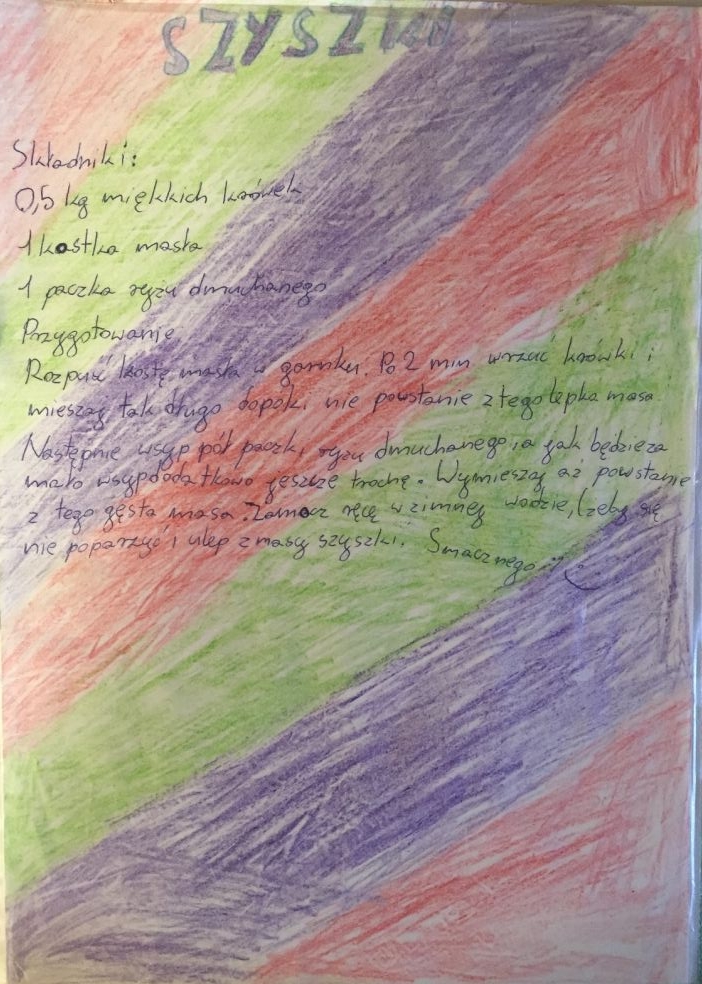 SZYSZKI
Składniki:
0,5 kg miękkich krówek
1 kostka masła
1 paczka ryżu dmuchanego
Przygotowanie
Rozpuść kostę masła w garnku. Po 2 min wrzuć krówki i
mieszaj tak długo dopóki nie powstanie z tego lepka masa
Następnie wsyp pół paczki ryżu dmuchanego, a jak będzie za
mało wsyp dodatkowo jeszcze trochę. Wymieszaj aż powstanie
z tego gęsta masa. Zamocz ręcę w zimnej wodzie, (żeby się
nie poparzyć i ulep z masy szyszki. Smacznego!!